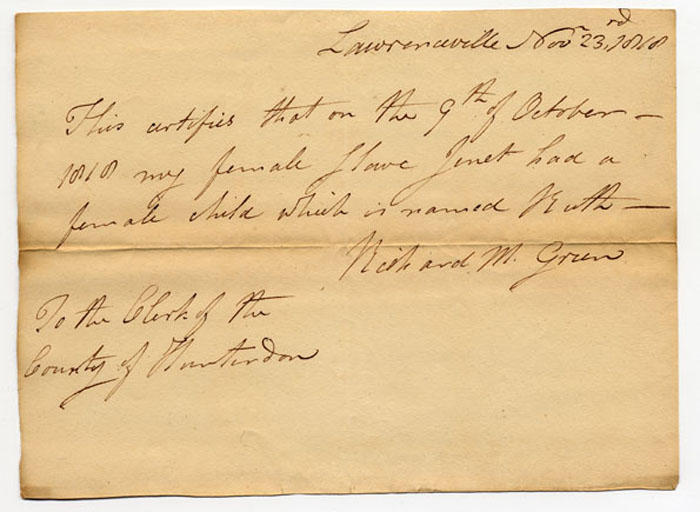 Lawrenceville Novr 23rd, 1818
This certifies that on the 9th of October —
1818 my female Slave Jenet had a
female child which is named Ruth —
Richard M. Green
To the Clerk of the
County of Hunterdon